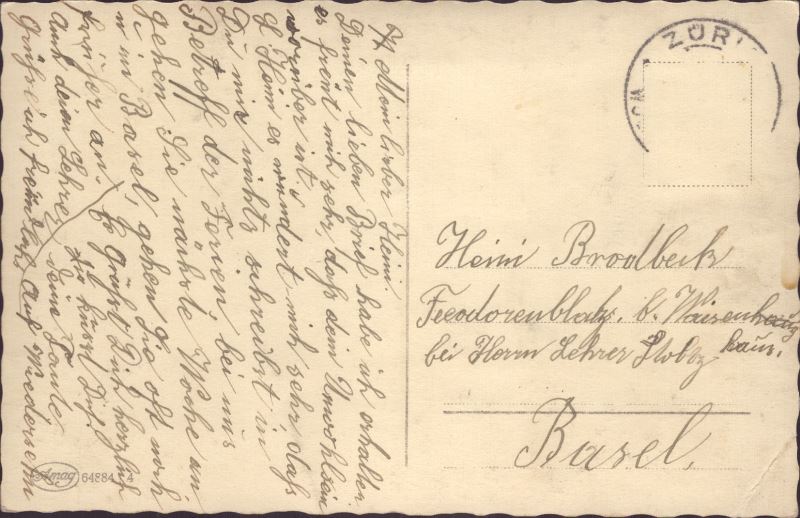 Mein lieber Heini.
Deinen lieben Brief habe ich erhalten
es freut mich sehr, daß dein Unwohlsein
vorüber ist.
Heini es wundert mich sehr, daß
Du mir nichts schreibst in
Betreff der Ferien, bei uns
gehen Sie nächste Woche an
in Basel, gehen Sie oft noch
früher an. Es grüßt Dich herzlich
u. küsst Dich
deine Tante
Auch deinen Lehrer
Grüße ich freundlich, Auf Wiedersehn
ZÜRI
Heini Brodbeck
Feeodorenblatz. b. Waisenhaus
haus.
bei Herrn Lehrer Stolz
Basel.
Amag
64884 4